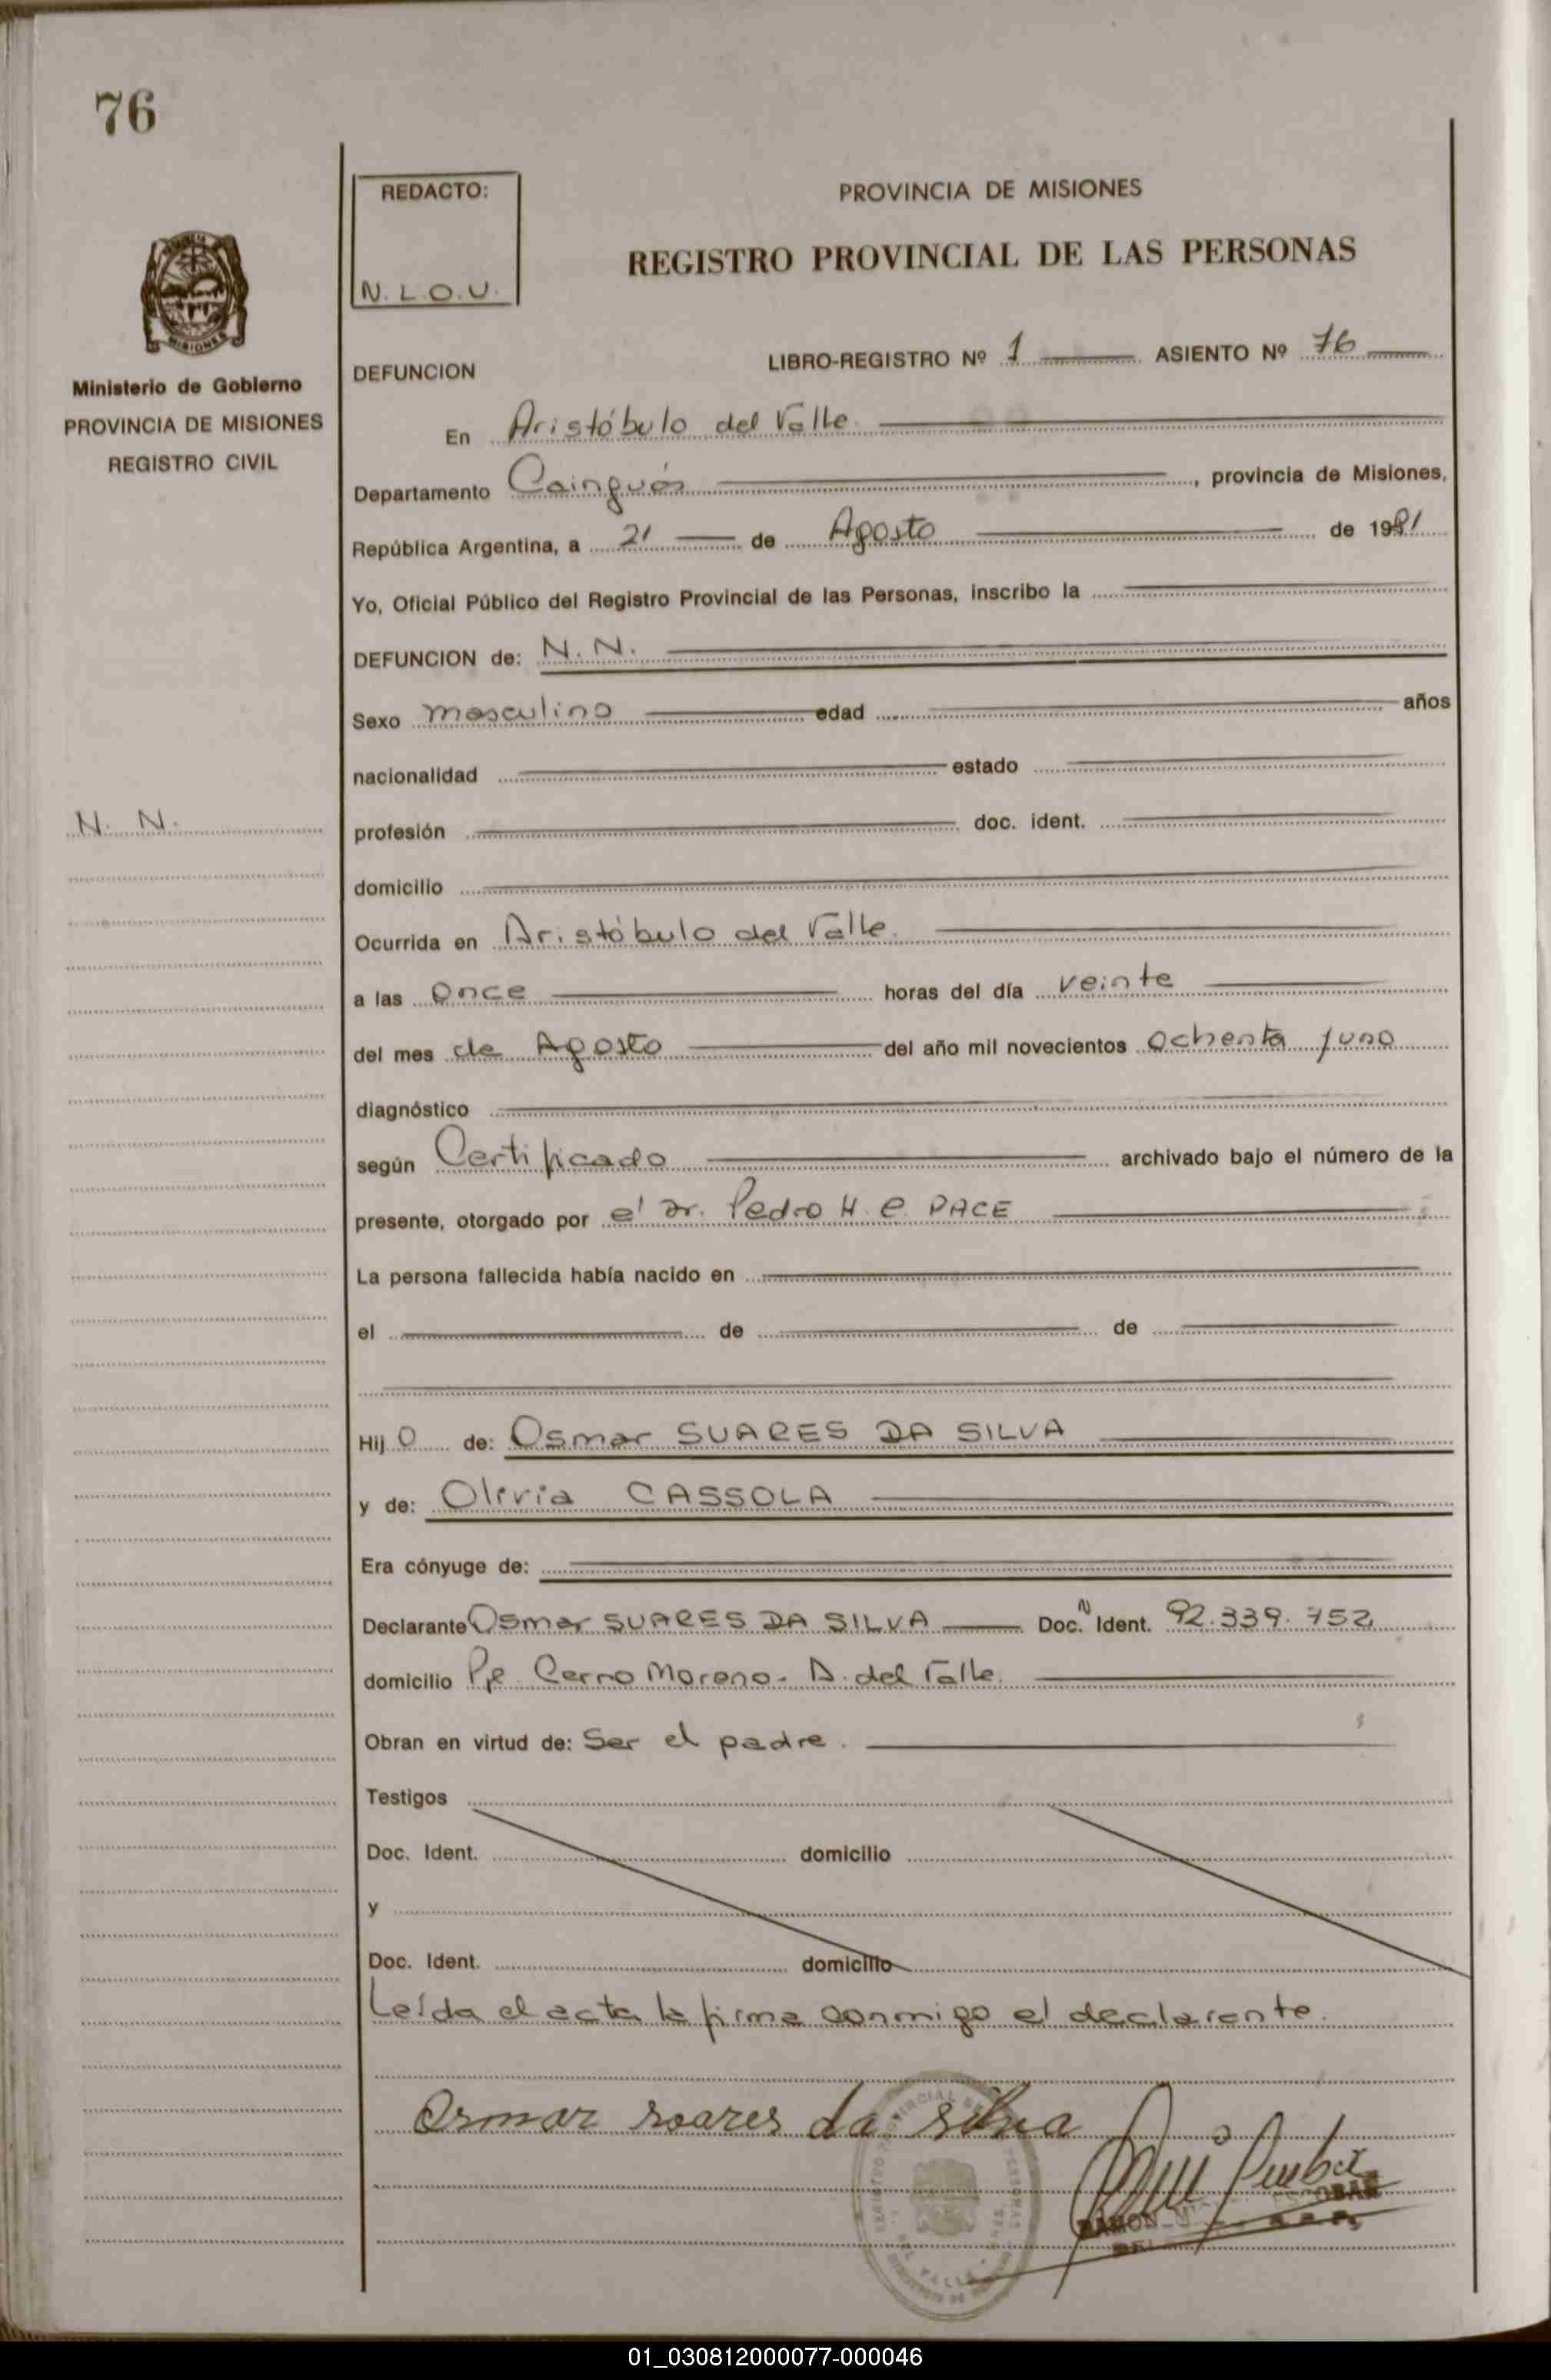 76
REDACTO:
N.L.O.U.
PROVINCIA DE MISIONES
REGISTRO PROVINCIAL DE LAS PERSONAS
MISIONES
Ministerio de Gobierno
PROVINCIA DE MISIONES
REGISTRO CIVIL
LIBRO-REGISTRO Nº 1 ASIENTO Nº 76
DEFUNCION
En Aristóbulo del Valle
Departamento Cainguás, provincia de Misiones,
República Argentina, a 21 de Agosto de 1981
Yo, Oficial Público del Registro Provincial de las Personas, inscribo la
DEFUNCION de: N. N.
Sexo masculino edad años
nacionalidad estado
N. N.
profesión doc. ident.
domicilio
Ocurrida en Aristóbulo del Valle.
a las once horas del día veinte
del mes de Agosto del año mil novecientos ochenta y uno
diagnóstico
según Certificado archivado bajo el número de la
presente, otorgado por el Dr. Pedro H. e PACE
La persona fallecida había nacido en
el de de
Hij o de: Osmar SUARES DA SILVA
y de: Olivia CASSOLA
Era cónyuge de:
Declarante Osmar SUARES DA SILVA Doc. N Ident. 92.339.752
domicilio Pje. Cerro Moreno - A. del Valle.
Obran en virtud de: Ser el padre.
Testigos
Doc. Ident. domicilio
y
Doc. Ident. domicilio
Leída el acta la firma conmigo el declarante.
Osmar soares da silva
RAMON
01_030812000077-000046